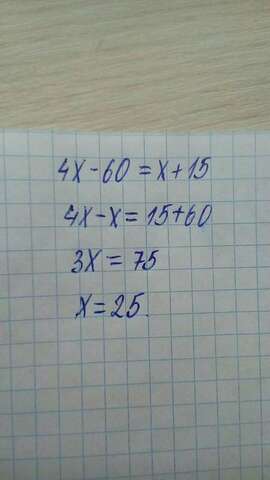 4x-60=x+15
4x-x=15+60
3x=75
x=25.